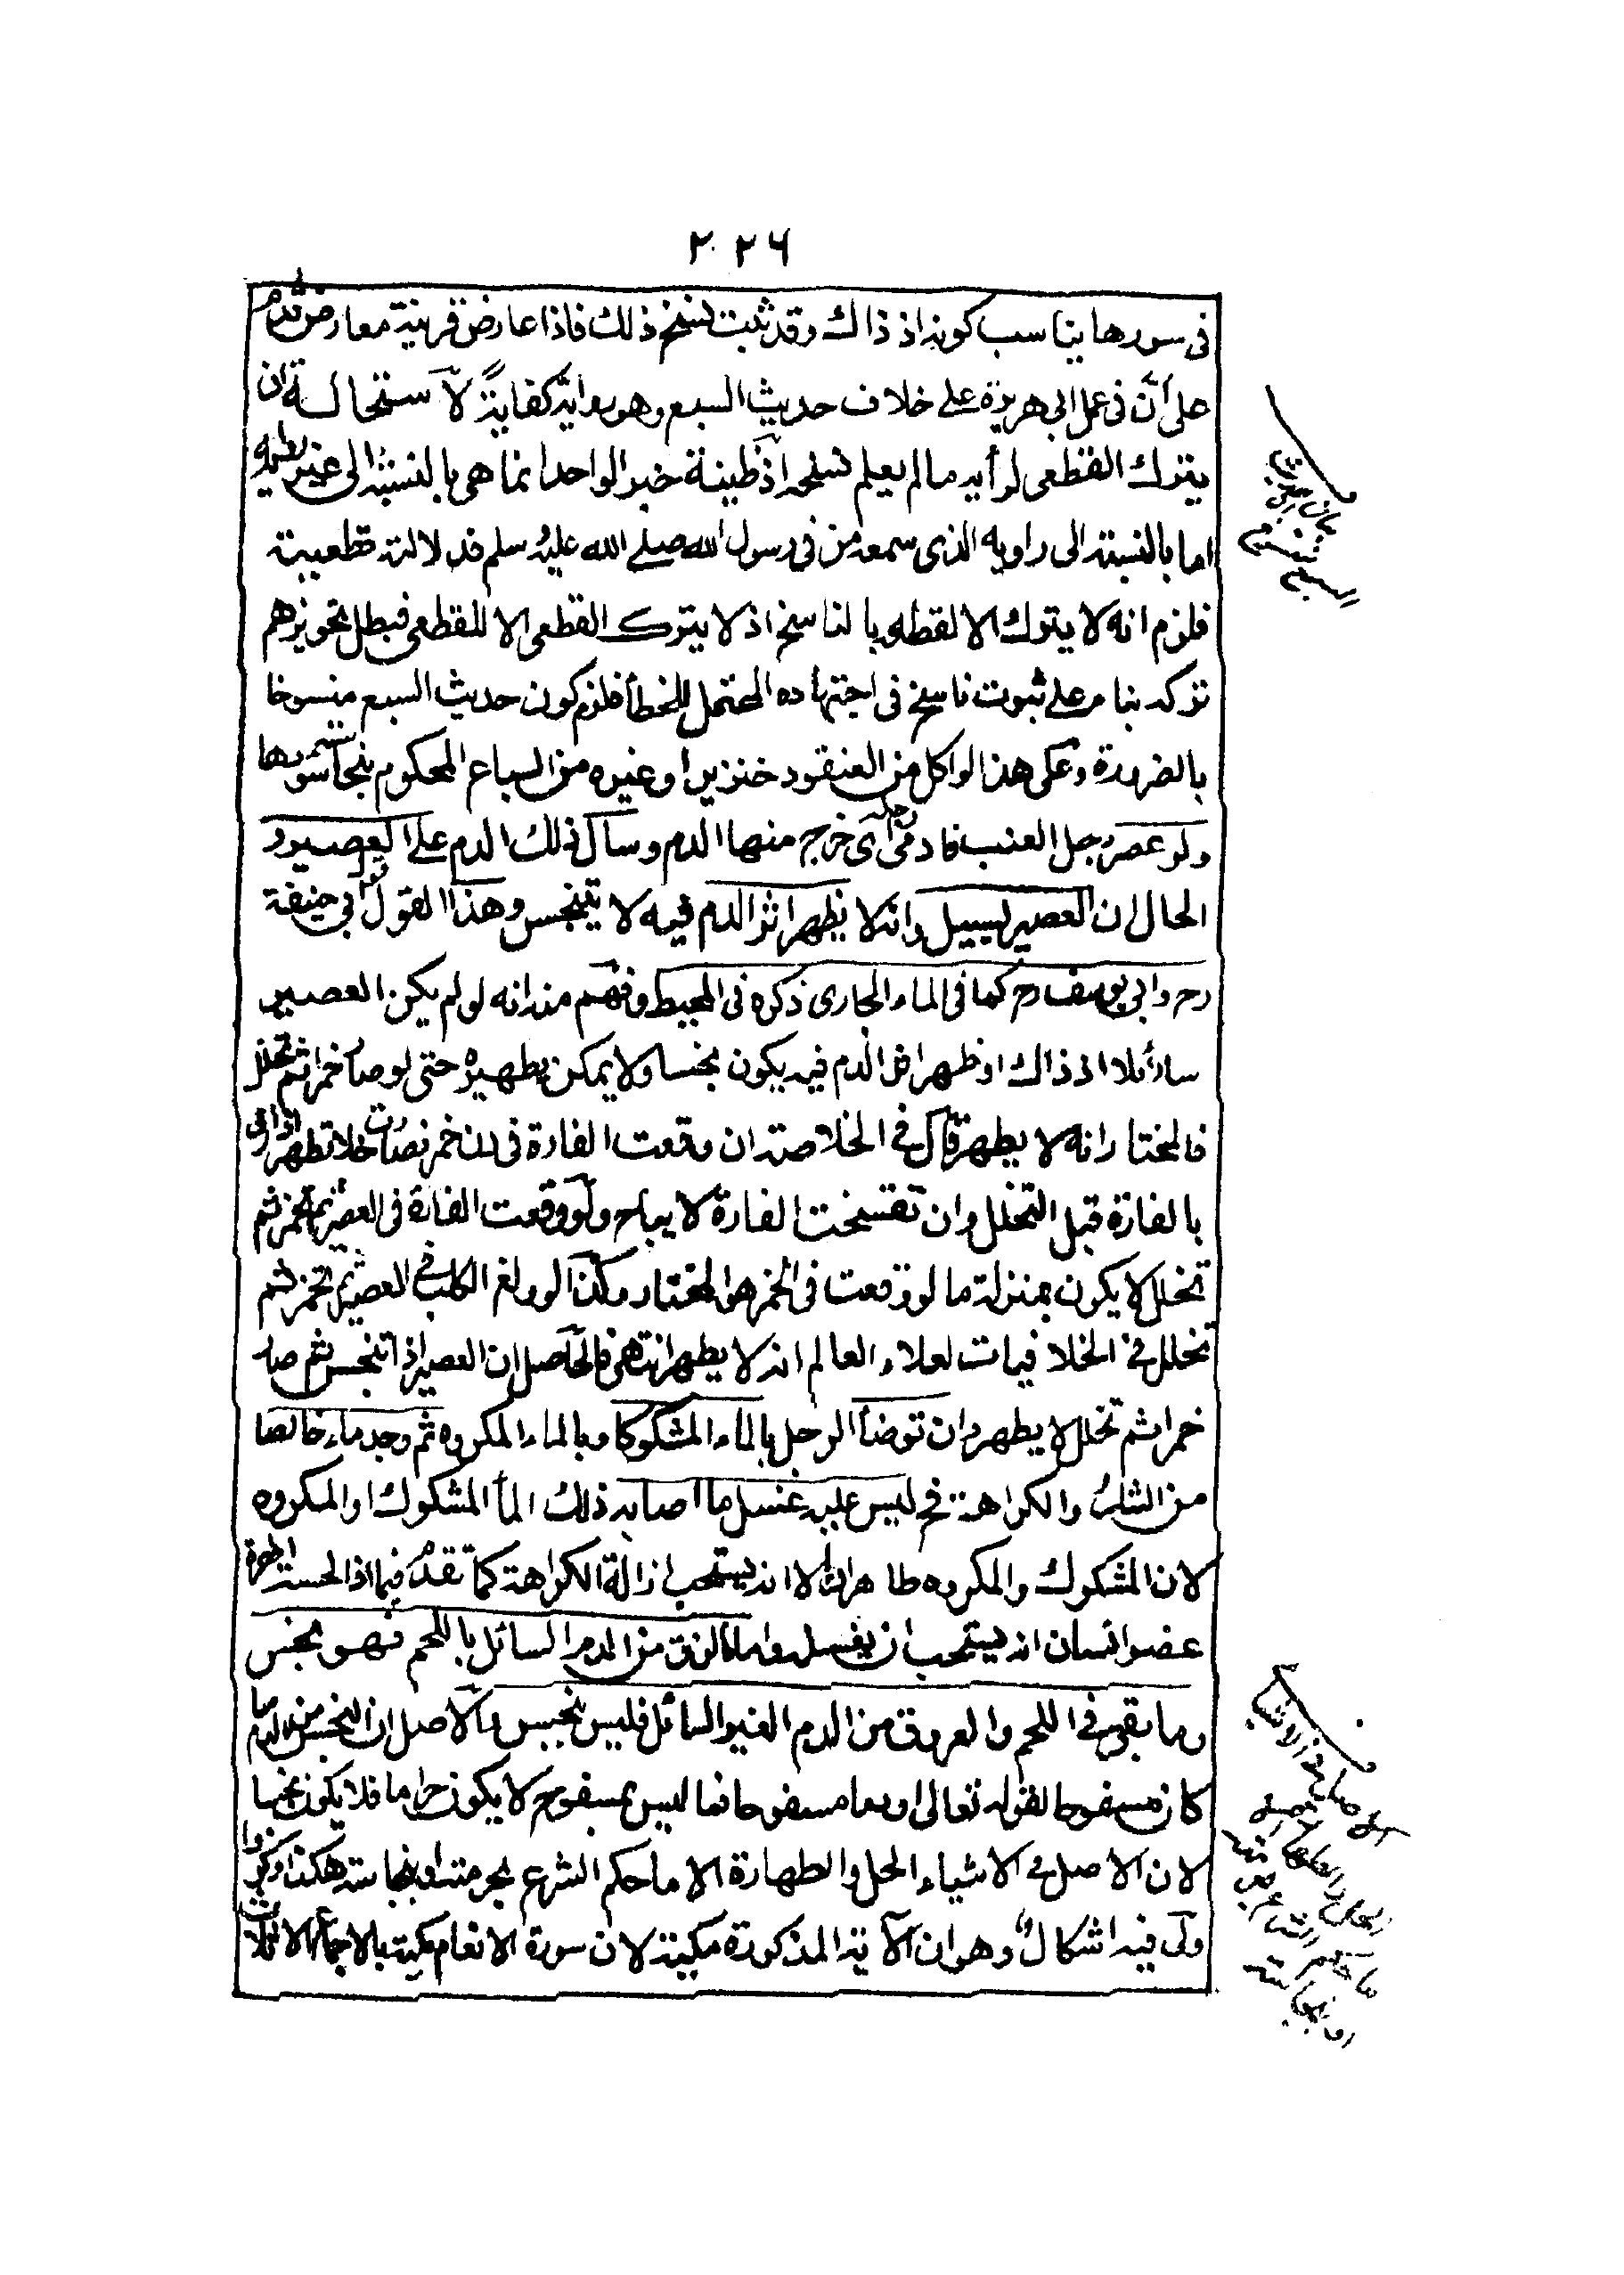 ٢٢٦
في سورها يناسب كونه اذ ذاك وقد ثبت نسخ ذلك فاذا عارض قرينة معارض قدم
على أن في عمل ابي هريرة على خلاف حديث السبع وهو راويه كفاية لاستحالة ان
يترك القطعي لرأيه ما لم يعلم نسخه اذ ظنية خبر الواحد انما هي بالنسبة الى غير راويه
اما بالنسبة الى راويه الذي سمعه من في رسول الله صلى الله عليه سلم فدلالته قطعية
فلزم انه لا يترك الا لقطعه بالناسخ اذ لا يترك القطعي الا للقطعي فبطل تجويزهم
تركه بناء على ثبوت ناسخ في اجتهاده المحتمل للخطأ فلزم كون حديث السبع منسوخا
بالضرورة وعلى هذا لو اكل من العنقود خنزير او غيره من السباع المحكوم بنجاسة سورها
ولو عصر رجل العنب فادمى رجله اى خرج منها الدم وسال ذلك الدم على العصير و
الحال ان العصير يسيل وانه لا يظهر اثر الدم فيه لا يتنجس وهذا القول قول ابي حنيفة
رح وابي يوسف رح كما في الماء الجارى ذكره في المحيط وفهم منه انه لو لم يكن العصير
سائلا اذ ذاك او ظهر اثر الدم فيه يكون نجسا ولا يمكن تطهيره حتى لو صار خمرا ثم تخلل
فالمختار انه لا يطهر قال في الخلاصة ان وقعت الفارة في دن خمر فصارت خلا تطهر اذا رمى
بالفارة قبل التخلل وان تفسخت الفارة لا يباح ولو وقعت الفارة في العصير ثم تخمر ثم
تخلل لا يكون بمنزلة ما لو وقعت في الخمر هو المختار وكذا لو ولغ الكلب في العصير ثم تخمر ثم
تخلل في الخلافيات لعلاء العالم انه لا يطهر انتهى فالحاصل ان العصير اذا تنجس ثم صار
خمرا ثم تخلل لا يطهر وان توضأ الرجل بالماء المشكوك او بالماء المكروه ثم وجد ماء خالصا
من الشك والكراهة فح ليس عليه غسل ما اصابه ذلك الماء المشكوك او المكروه
لان المشكوك والمكروه طاهران الا انه يستحب ازالة الكراهة كما تقدم فيما اذا لحست الهرة
عضو انسان انه يستحب ان يغسله واما ما لزق من الدم السائل باللحم فهو نجس
وما بقي في اللحم والعروق من الدم الغير السائل فليس بنجس والاصل ان النجس من الدم ما
كان مسفوحا لقوله تعالى او دما مسفوحا فما ليس بمسفوح لا يكون حراما فلا يكون نجسا
لان الاصل في الاشياء الحل والطهارة الا ما حكم الشرع بحرمته او بنجاسته هكذا ذكروا
ولى فيه اشكال وهو ان الآية المذكورة مكية لان سورة الانعام مكية بالاجماع الا ثلاث
السبع
الاصل في الاشياء